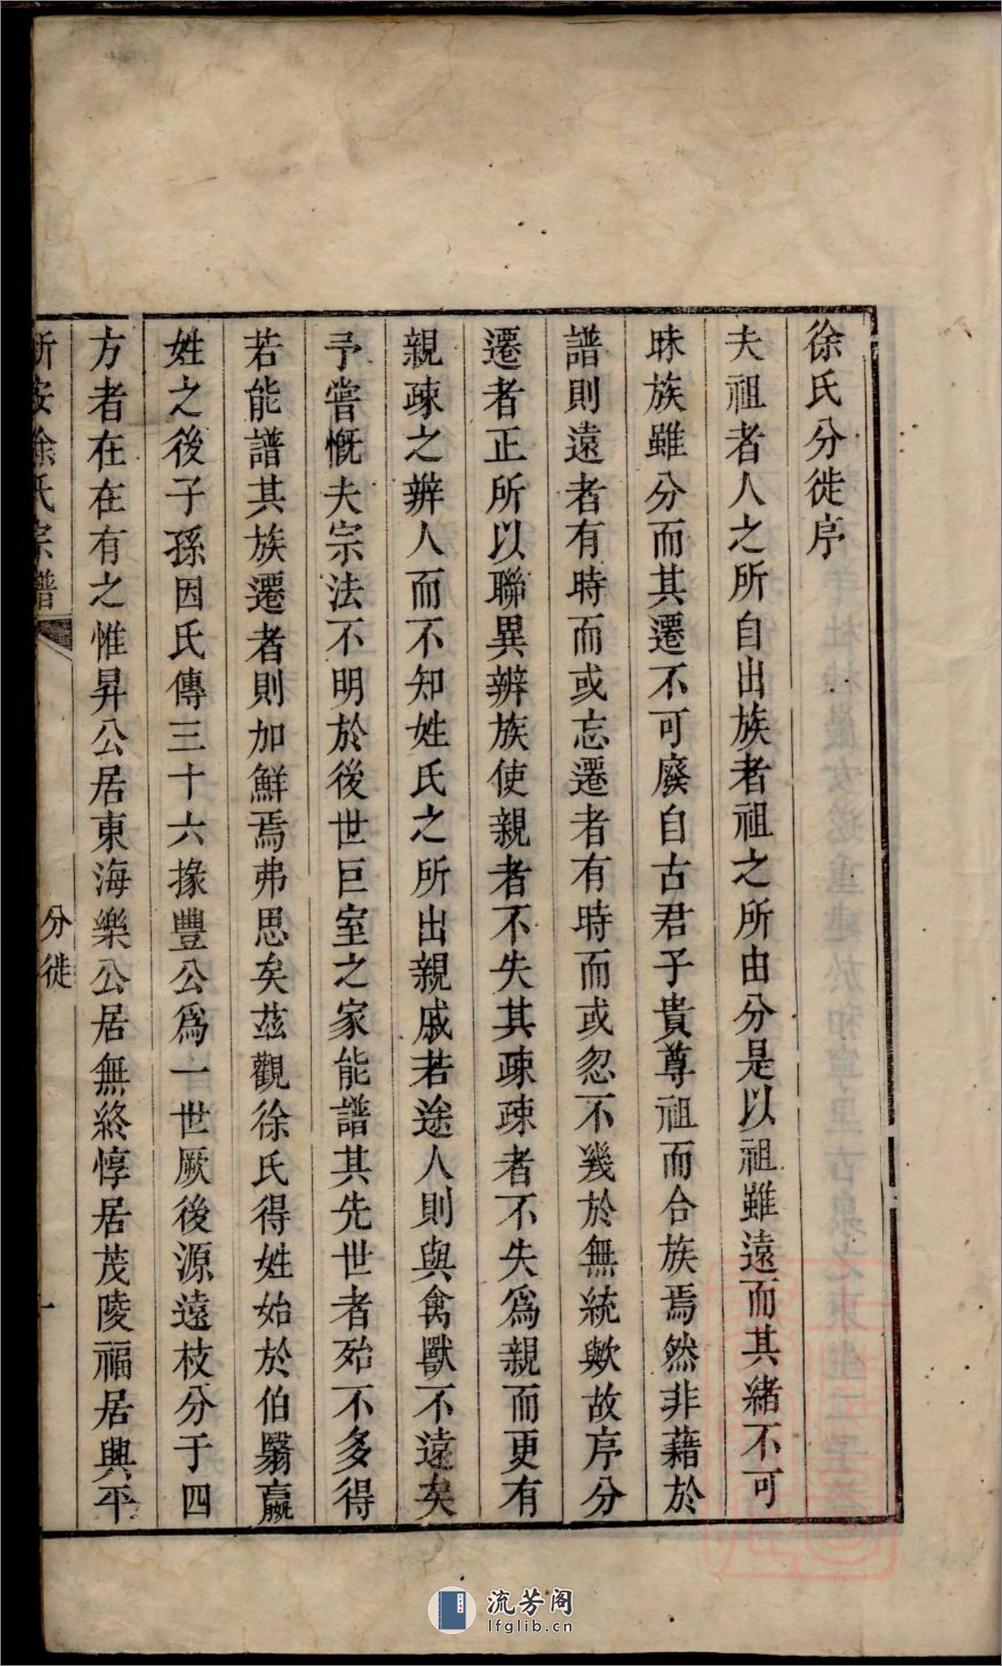 徐氏分徙序
夫祖者人之所自出族者祖之所由分是以祖雖遠而其緒不可
昧族雖分而其遷不可廢自古君子貴尊祖而合族焉然非藉於
譜則遠者有時而或忘遷者有時而或忽不幾於無統歟故序分
遷者正所以聯異辨族使親者不失其疎疎者不失為親而更有
親疎之辨人而不知姓氏之所出親戚若途人則與禽獸不遠矣
予嘗慨夫宗法不明於後世巨室之家能譜其先世者殆不多得
若能譜其族遷者則加鮮焉弗思矣茲觀徐氏得姓始於伯翳嬴
姓之後子孫因氏傳三十六掾豐公為一世厥後源遠枝分于四
方者在在有之惟昇公居東海樂公居無終惇居茂陵福居興平
新安徐氏宗譜
分徙
一
流芳阁
lfglib.cn